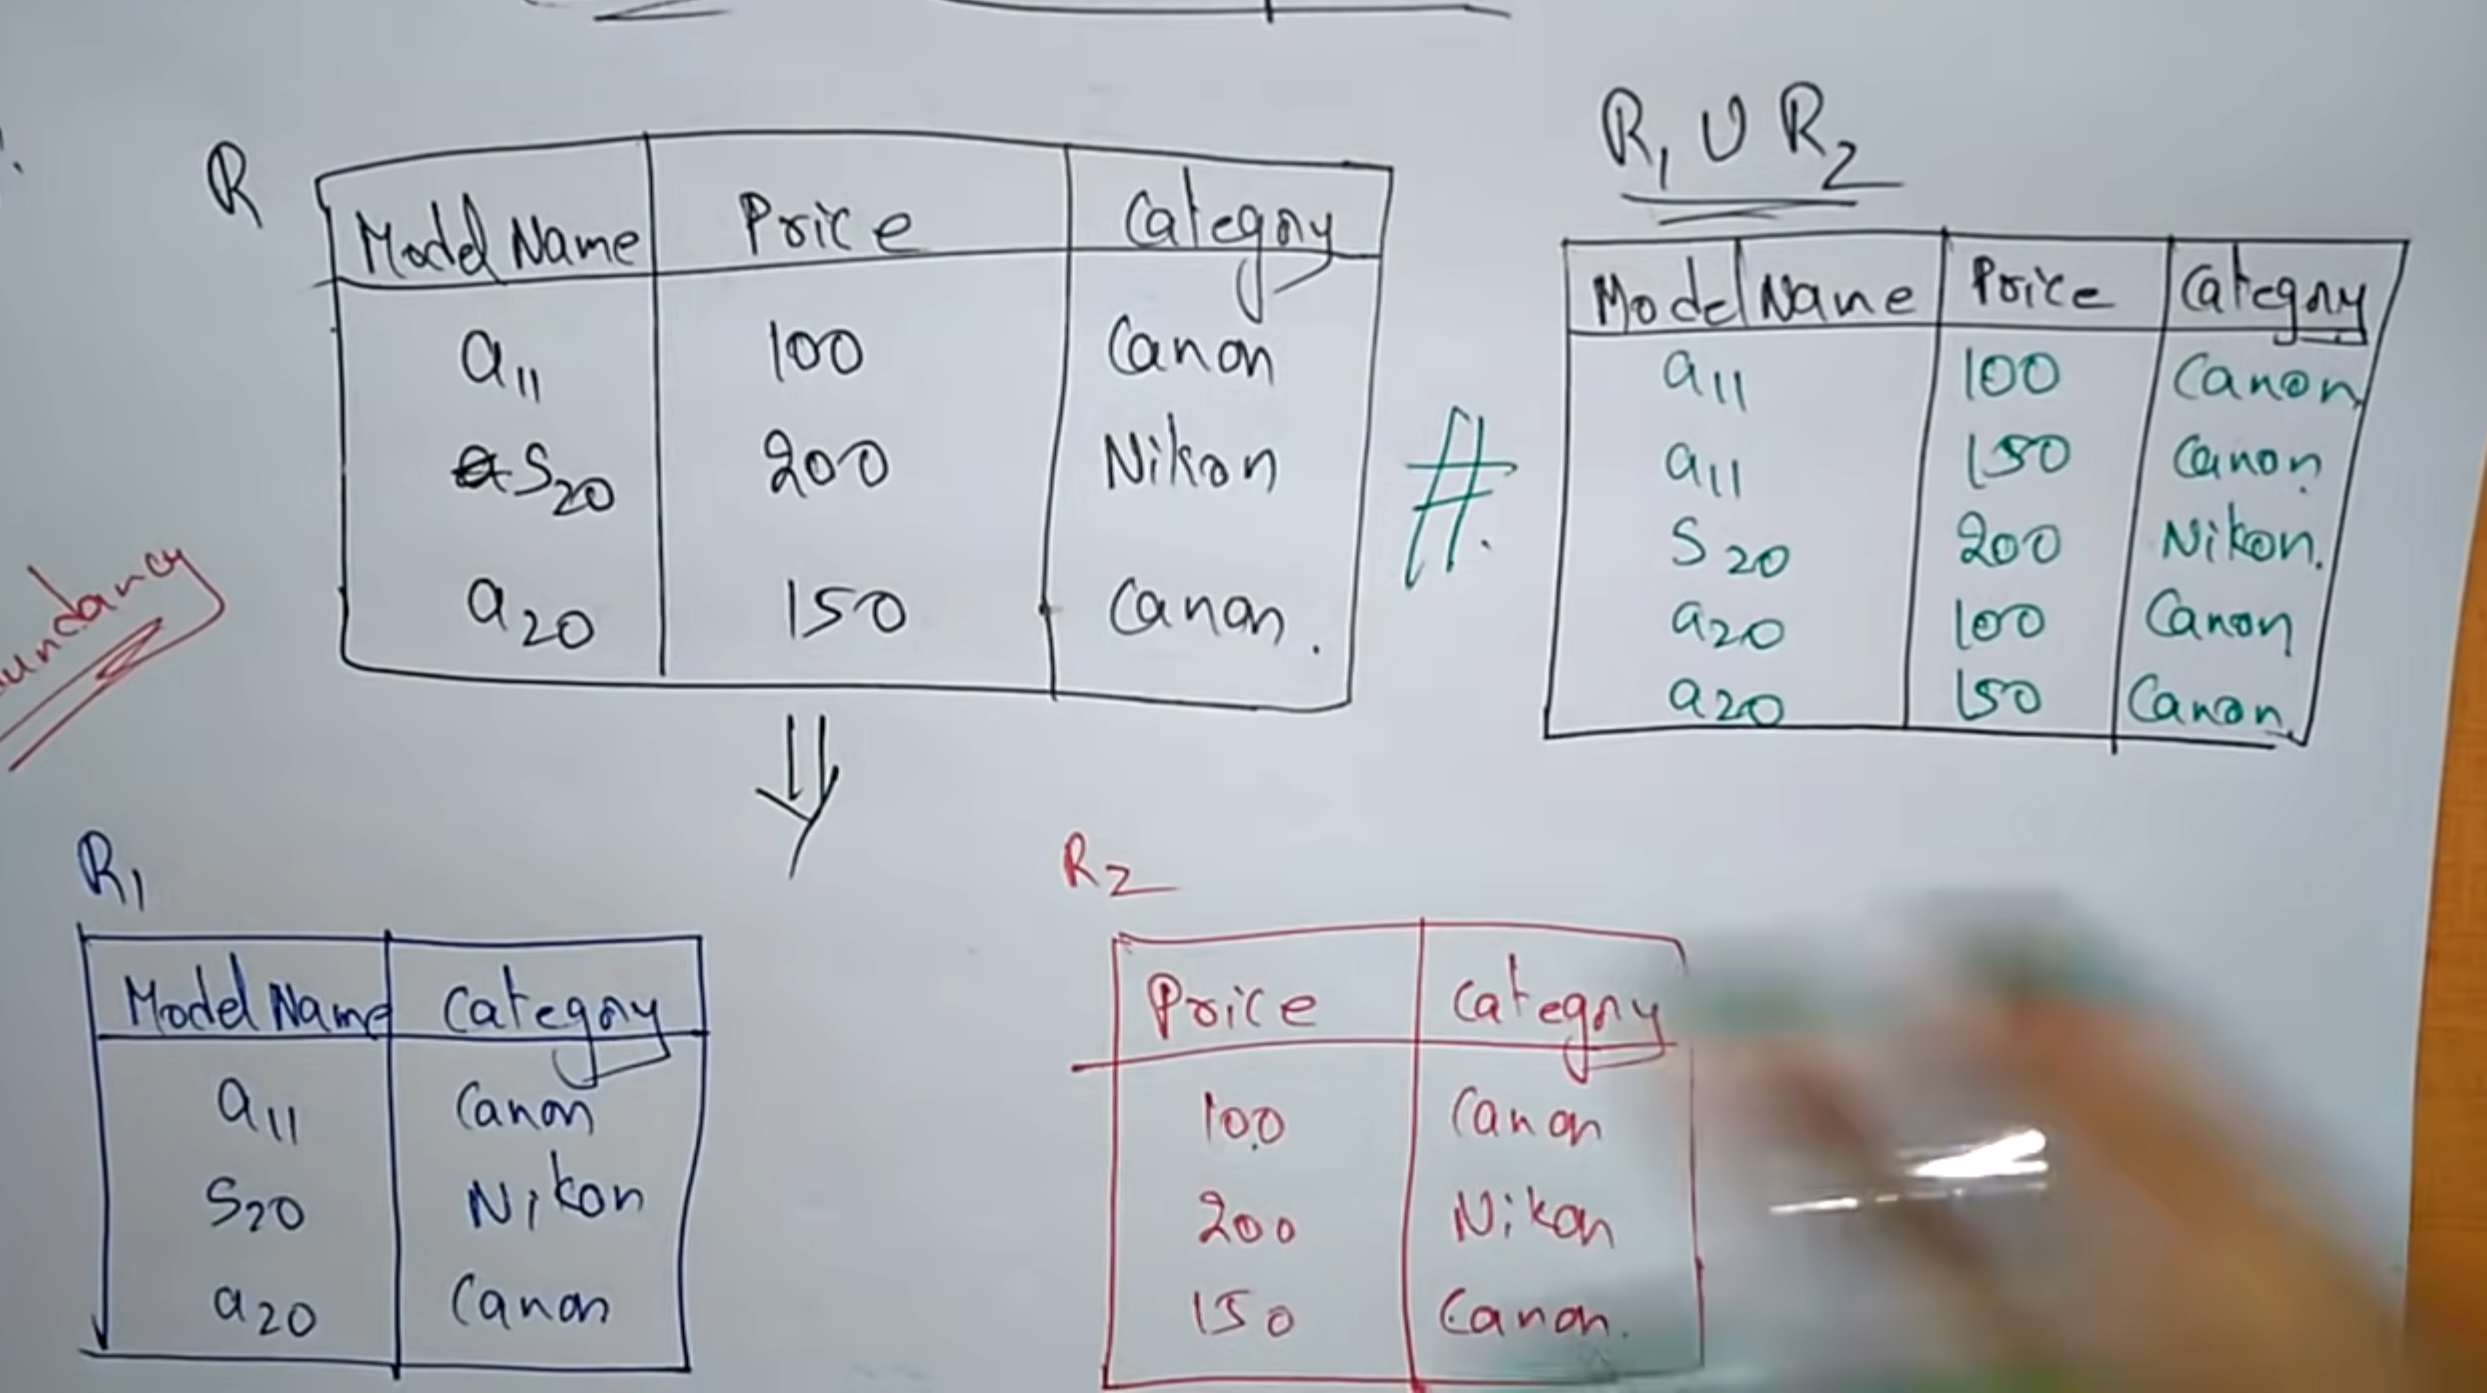 R
Model Name Price Category
a11 100 Canon
S20 200 Nikon
a20 150 Canon.
R1 U R2
Model Name Price Category
a11 100 Canon
a11 150 Canon
S20 200 Nikon.
a20 100 Canon
a20 150 Canon
≠
undancy
R1
Model Name Category
a11 Canon
S20 Nikon
a20 Canon
R2
Price Category
100 Canon
200 Nikon
150 Canon.